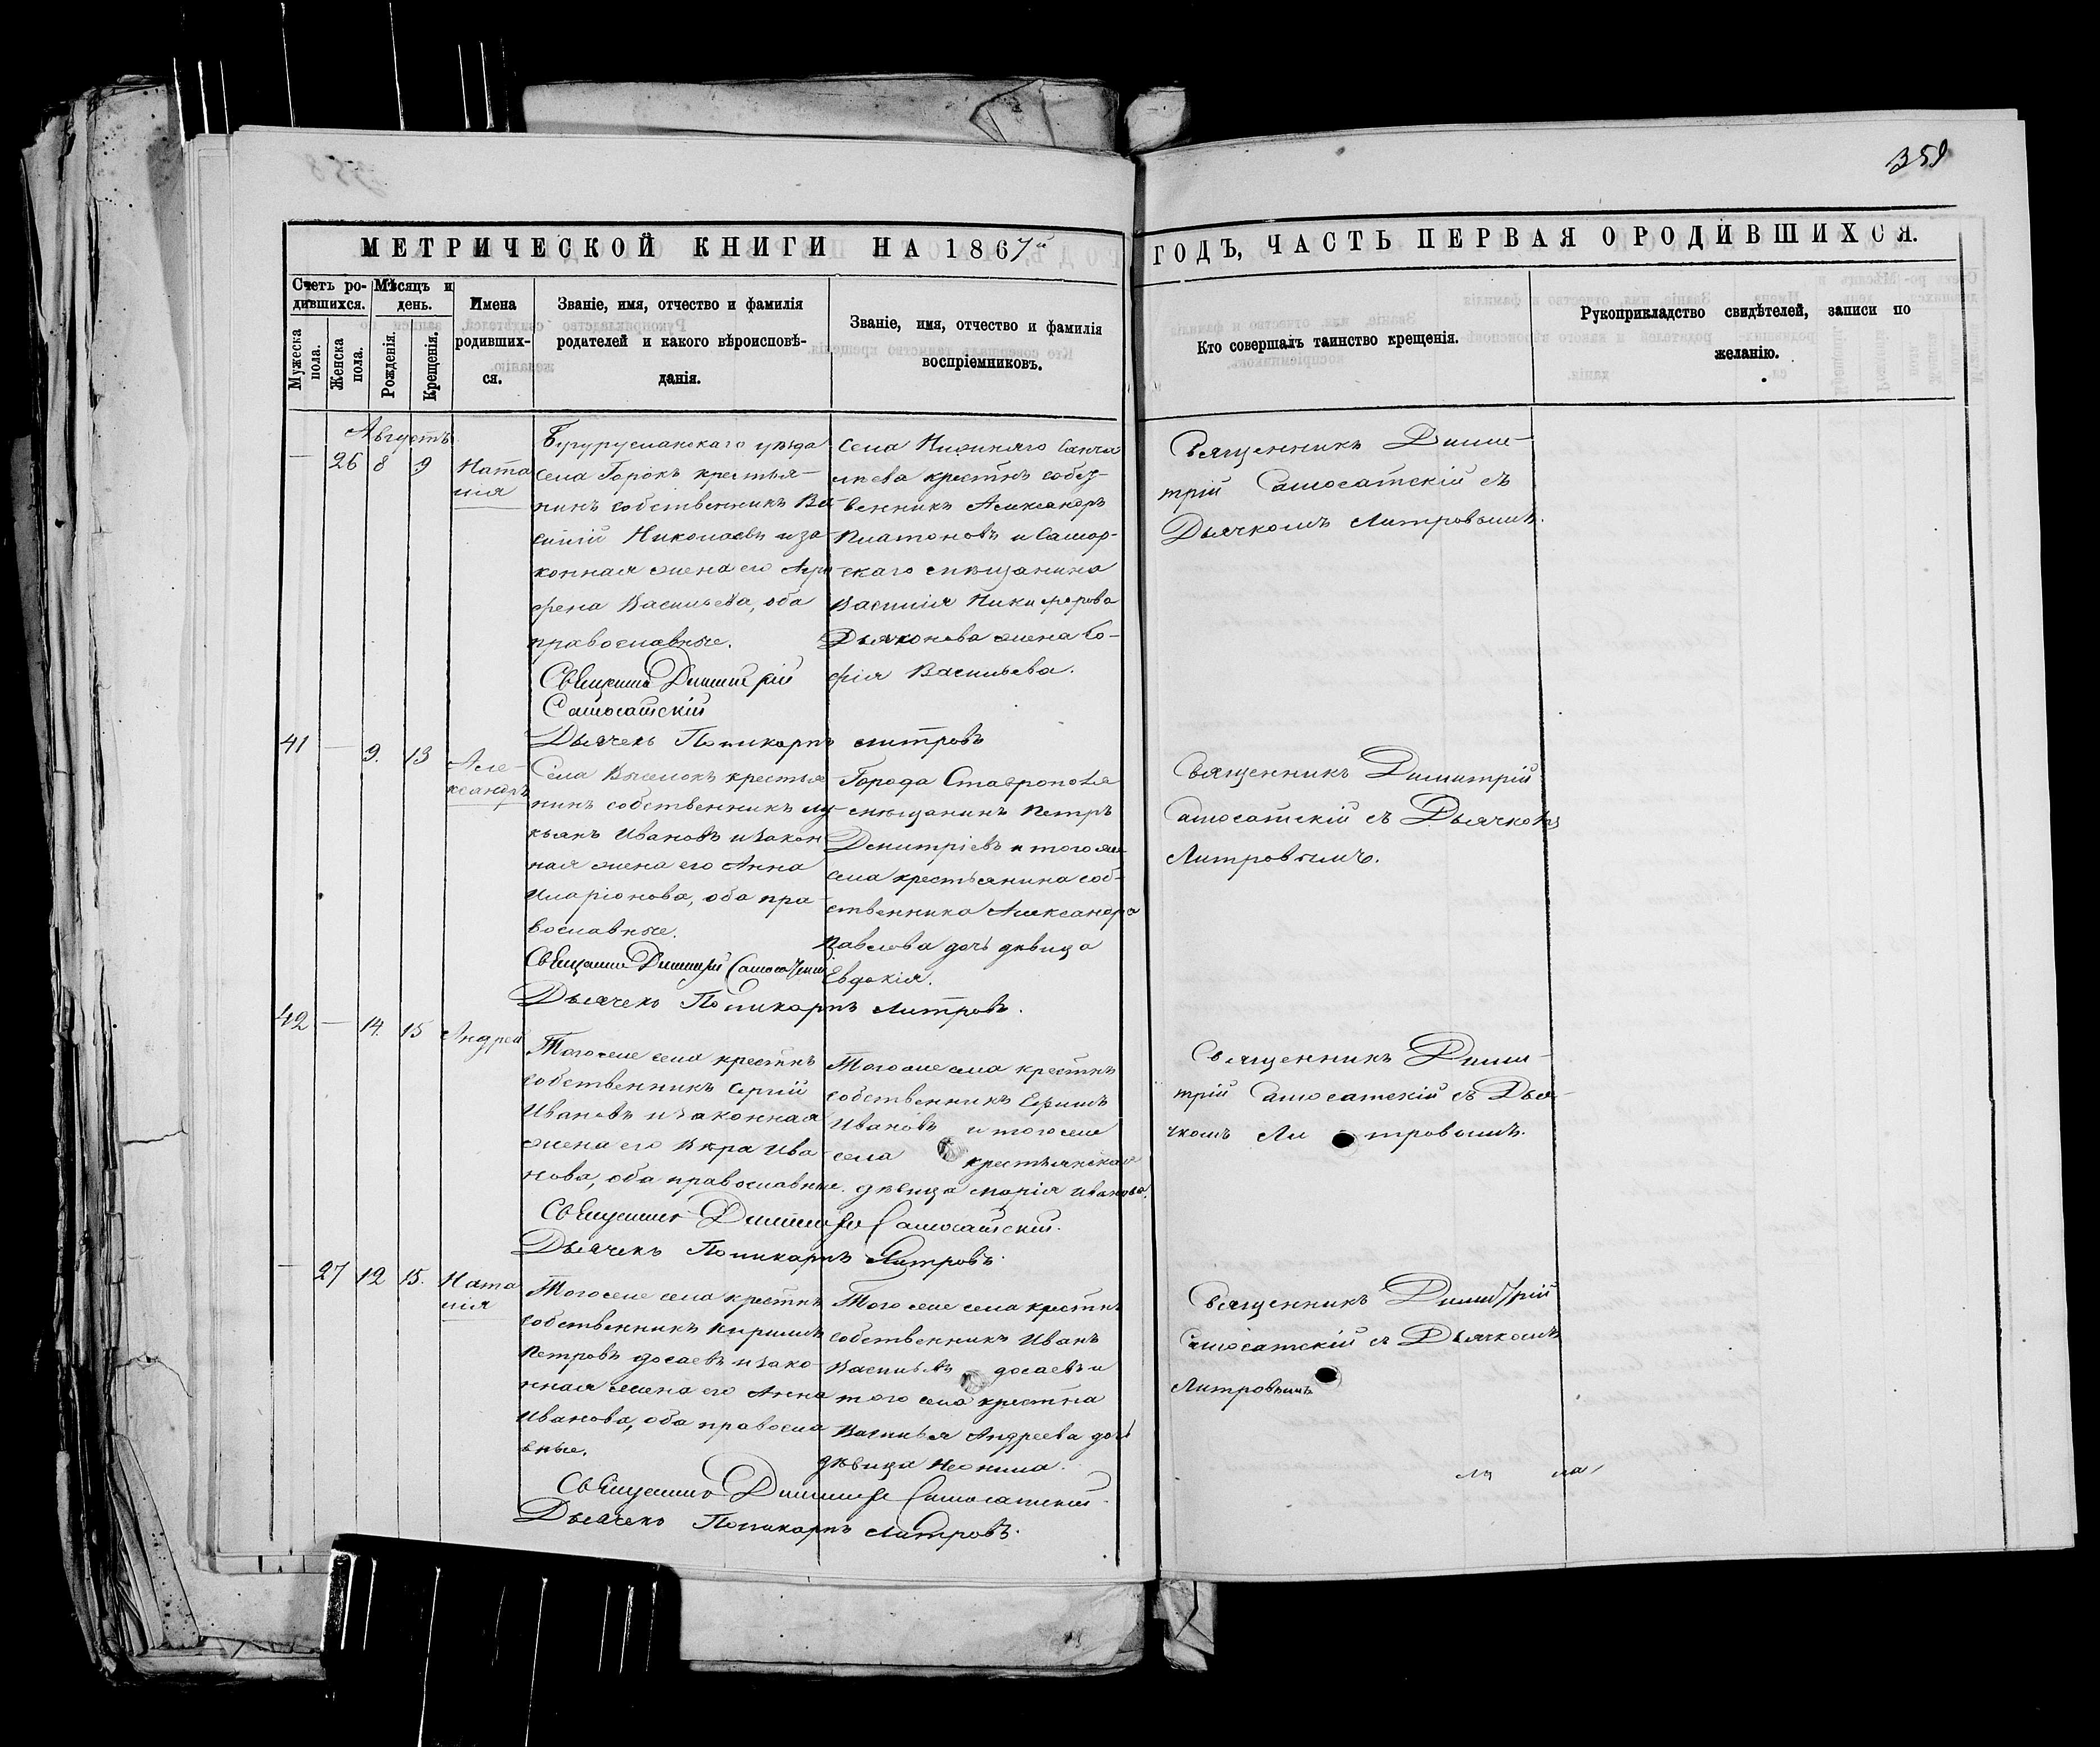 359
МЕТРИЧЕСКОЙ КНИГИ НА 1867й ГОДЪ, ЧАСТЬ ПЕРВАЯ О РОДИВШИХСЯ.
Счетъ ро-
дившихся.
Мужеска
пола.
Женска
пола.
Мѣсяцъ и
день.
Рожденія.
Крещенія.
Имена
родивших-
ся.
Званіе, имя, отчество и фамилія
родителей и какого вѣроисповѣ-
данія.
Званіе, имя, отчество и фамилія
воспріемниковъ.
Кто совершалъ таинство крещенія.
Рукоприкладство свидѣтелей, записи по
желанію.
Августъ
— 26 8 9
Ната
лія
Бугурусланскаго уѣзда
села Горокъ крестья-
нинъ собственникъ Ва
силій Николаевъ и за
конная жена его Агри
фена Васильева, оба
православные.
Священникъ Димитрій
Самосатскій
Дьячекъ Поликарпъ Литровъ
села Нижняго
крестнъ собст-
венникъ Александръ
Платоновъ и Самар-
скаго мѣщанина
Василія Никифорова
Дьяконова жена Со-
фія Васильева.
Священникъ Дими-
трій Самосатскій съ
Дьячкомъ Литровымъ.
41 — 9. 13
Але-
ксандръ
Села Выселокъ крестья
нинъ собственникъ Лу-
кьянъ Ивановъ и закон
ная жена его Анна
Иларіонова, оба пра-
вославные.
Священникъ Димитрій Самосатскій
Дьячекъ Поликарпъ Литровъ.
Города Ставрополя
мѣщанинъ Петръ
Демитріевъ и тогоже
села крестьянина соб-
ственника Александра
Павлова дочь дѣвица
Евдокія.
Священникъ Димитрій
Самосатскій съ Дьячкомъ
Литровымъ.
42 — 14. 15
Андрей
Тогоже села крестнъ
собственникъ Сергій
Ивановъ и законная
жена его Вѣра Ива
нова, оба православные.
Священникъ Димитрій Самосатскій.
Дьячекъ Поликарпъ Литровъ.
Тогоже села крестнъ
собственникъ Ефимъ
Ивановъ и тогоже
села крестьянская
дѣвица Марія Иванова.
Священникъ Дими-
трій Самосатскій съ Дья-
чкомъ Литровымъ.
— 27 12 15.
Ната
лія
Тогоже села крестнъ
собственникъ Кирилъ
Петровъ Досаевъ и зако-
нная жена его Анна
Иванова, оба правосла
вные.
Священникъ Димитрій Самосатскій
Дьячекъ Поликарпъ Литровъ.
Того же села крестнъ
собственникъ Иванъ
Васильевъ Досаевъ и
того села крестна
Василья Андреева дочь
дѣвица Неонила.
Священникъ Димитрій
Самосатскій съ Дьячкомъ
Литровымъ